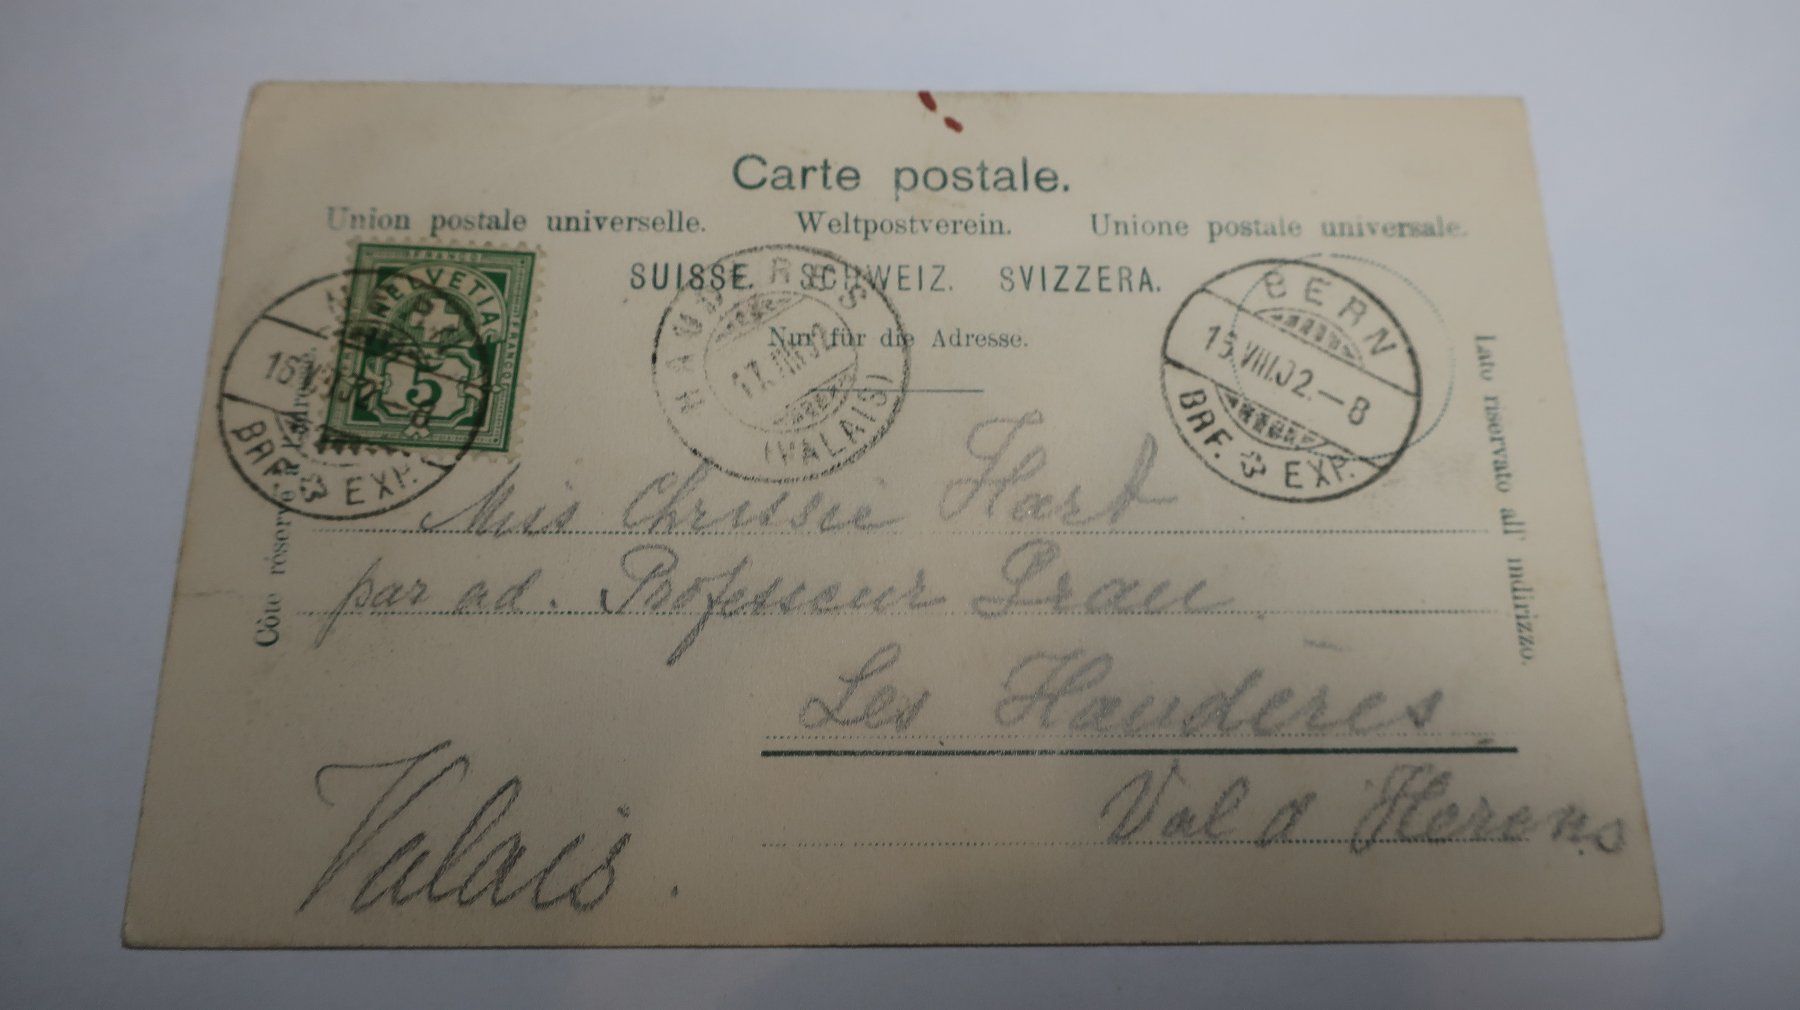 Carte postale.
Union postale universelle. Weltpostverein. Unione postale universale.
SUISSE. SCHWEIZ. SVIZZERA.
Nur für die Adresse.
Côté réservé à l'adresse.
Lato riservato all' indirizzo.
FRANCO
HELVETIA
FRANCO
5
BRF. EXP.
HAUDERES
17.VIII.02
(VALAIS)
BERN
15.VIII.02.-8
BRF. EXP.
Miss Chrissie Hart
par ad. Professeur Prau
Les Haudères
Val d Herens
Valais.